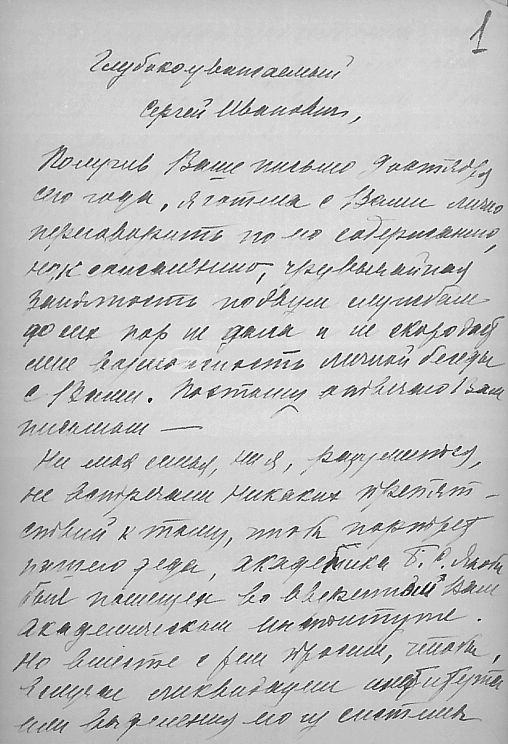 1
Глубокоуважаемый
Сергей Иванович,
Получив Ваше письмо октября
сего года, я хотела с Вами лично
переговорить по его содержанию,
но, к сожалению, чрезвычайная
занятость по двум службам
до сих пор не дала и не скоро даст
мне возможность личной беседы
с Вами. Поэтому отвечаю Вам
письмом —
Ни моя семья, ни я, разумеется,
не встречали никаких препят-
ствий к тому, чтобы портрет
нашего деда, академика Б. С. Якоби
был помещен во вверенный Вам
академическом институте.
Но вместе с тем просим, чтобы,
в случае ликвидации института
или выделения из системы